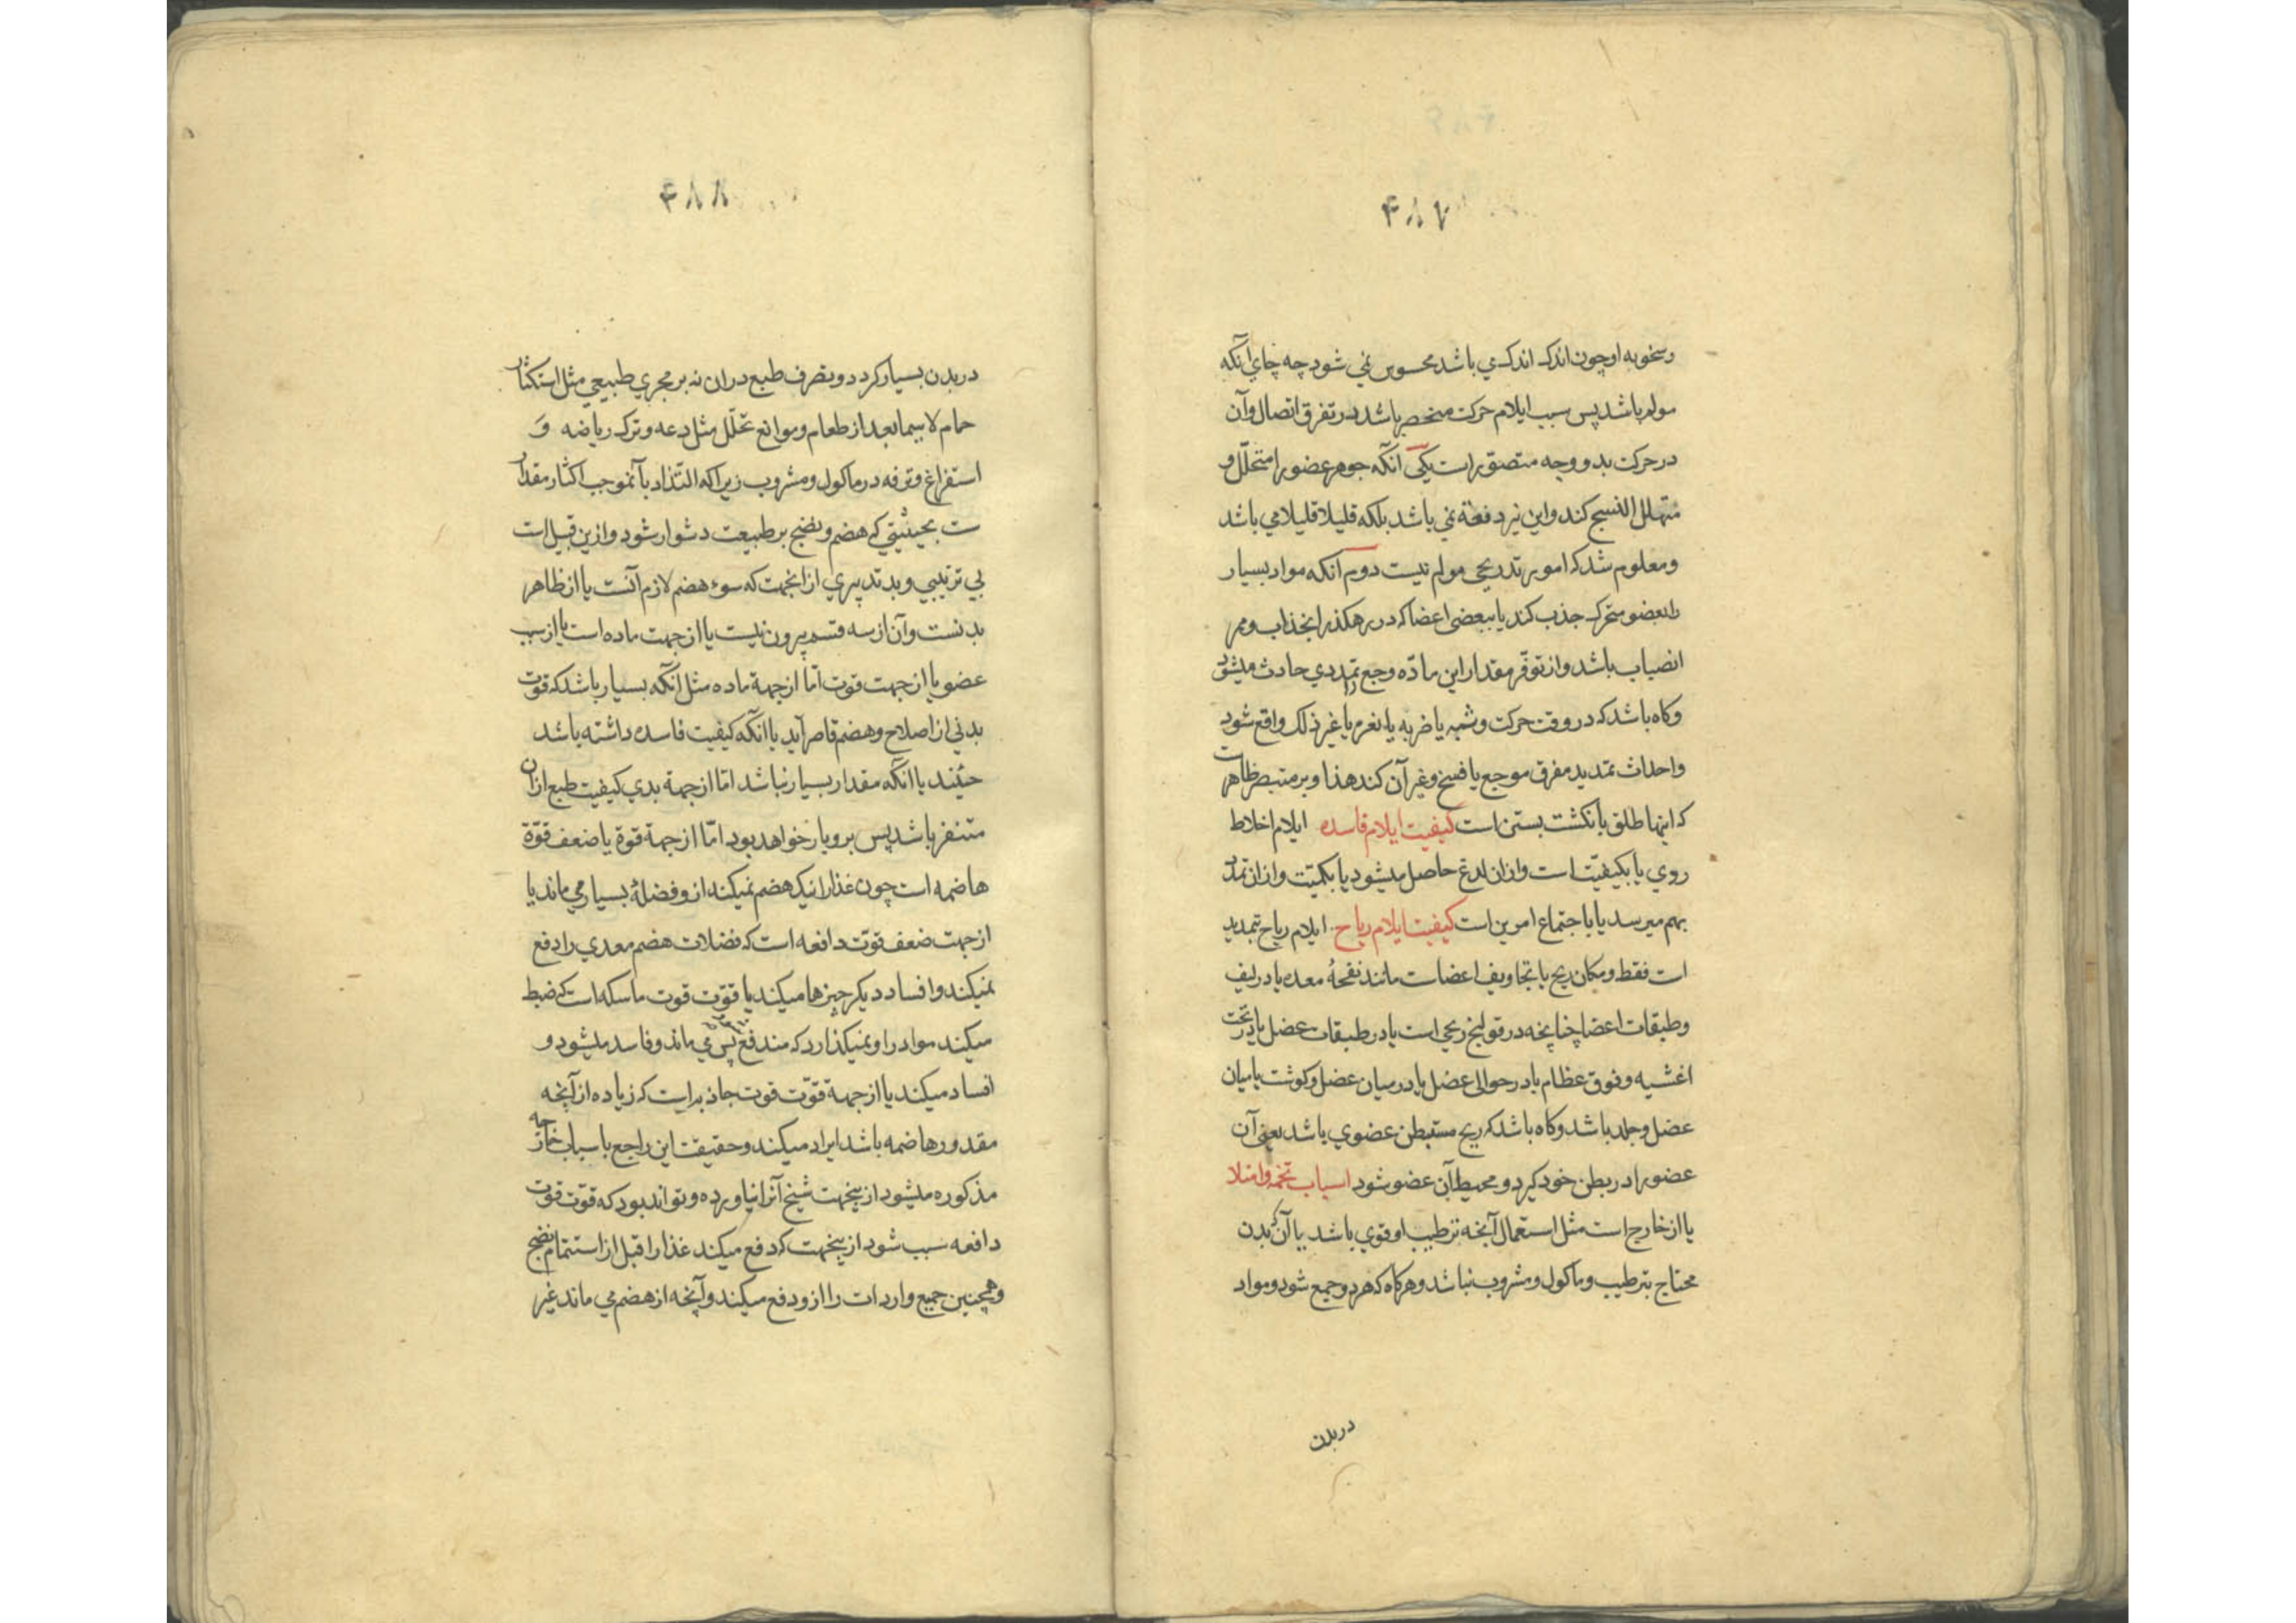 ۴۸۷
وسخونه او چون اندک اندک می باشد محسوس نمی شود چه جای آنکه
مولم باشد پس سبب ایلام حرکت منحصر باشد در تفرق اتصال وآن
در حرکت بدو وجه متصور است یکی آنکه جوهر عضو را متخلل و
متهلل النسج کند واین نیز دفعة نمی باشد بلکه قلیلا قلیلا می باشد
ومعلوم شد که امور تدریجی مولم نیست دوم آنکه مواد بسیار
را بعضو متحرک جذب کند یا ببعضی اعضا که در رهکذر انجذاب وممر
انصباب باشد واز توفر مقدار این ماده وجع تمددی حادث میشود
وکاه باشد که در وقت حرکت وثبه یا ضربه یا یا غیر ذلک واقع شود
واحداث تمدید مفرق موجع یا فسخ وغیر آن کند هذا وبر متبصر ظاهرات
که اینها طلق بانکشت بستن است کیفیت ایلام فاسده ایلام اخلاط
روی یا بکیفیت است وازان لدغ حاصل میشود یا بکمیت وازان تمدد
بهم میرسد یا باجتماع امرین است کیفیت ایلام ریاح ایلام ریاح تمدید
است فقط ومکان ریح یا تجاویف اعضاست مانند نفخهٔ معده یا در لیف
وطبقات اعضا چنانچه در قولنج ریحی است یا در طبقات عضل یا در تحت
اغشیه وفوق عظام یا در حوالی عضل یا در میان عضل وکوشت یا میان
عضل وجلد باشد وکاه باشد که ریح مستبطن عضوی باشد یعنی آن
عضو را در بطن خود کیرد ومحیط آن عضو شود اسباب تخمه وامتلا
یا از خارج است مثل استعمال آنچه ترطیب او قوی باشد یا آن که بدن
محتاج بترطیب وماکول ومشروب نباشد وهرکاه که هر دو جمع شود ومواد
در بدن
۴۸۸
در بدن بسیار کردد وتصرف طبع دران نه بر مجری طبیعی مثل استکثار
حمام لاسیما بعد از طعام وموانع تحلل مثل دعه وترک ریاضه وَ
استفراغ وترفه در ماکول ومشروب زیراکه التذاذ بآنموجب اکثار مقدار
ست بحیثیتی که هضم ونضج بر طبیعت دشوار شود وازین قبیل است
بی ترتیبی وبد تدبیری ازانجهت که سوء هضم لازم آنست یا از ظاهر
بدنست وآن از سه قسم بیرون نیست یا از جهت ماده است یا از سبب
عضو یا از جهت قوت اما از جهة ماده مثل آنکه بسیار باشد که قوت
بدنی از اصلاح وهضم قاصر آید یا آنکه کیفیت فاسده داشته باشد
حینئذ یا آنکه مقدار بسیار نباشد اما از جهة بدی کیفیت طبع ازان
متنفر باشد پس برو بار خواهد بود امّا از جهة قوة یا ضعف قوّة
هاضمه است چون غذا را نیک هضم نمیکند ازو فضلهٔ بسیار می ماند یا
از جهت ضعف قوّت دافعه است که فضلات هضم معدی را دفع
نمیکند وافساد دیکر چیزها میکند یا قوّت قوت ماسکه است که ضبط
میکند مواد را ونمیکذارد که مندفع پس می ماند وفاسد میشود و
افساد میکند یا از جهة قوّت قوت جاذبه است که زیاده از آنچه
مقدور هاضمه باشد ایراد میکند وحقیقت این راجع باسباب خارجه
مذکوره میشود ازینجهت شیخ آنرا نیاورده وتواند بود که قوّت قوت
دافعه سبب شود ازینجهت که دفع میکند غذا را قبل از استتمام نضج
وهمچنین جمیع واردات را ازو دفع میکند وآنچه از هضم می ماند غیر